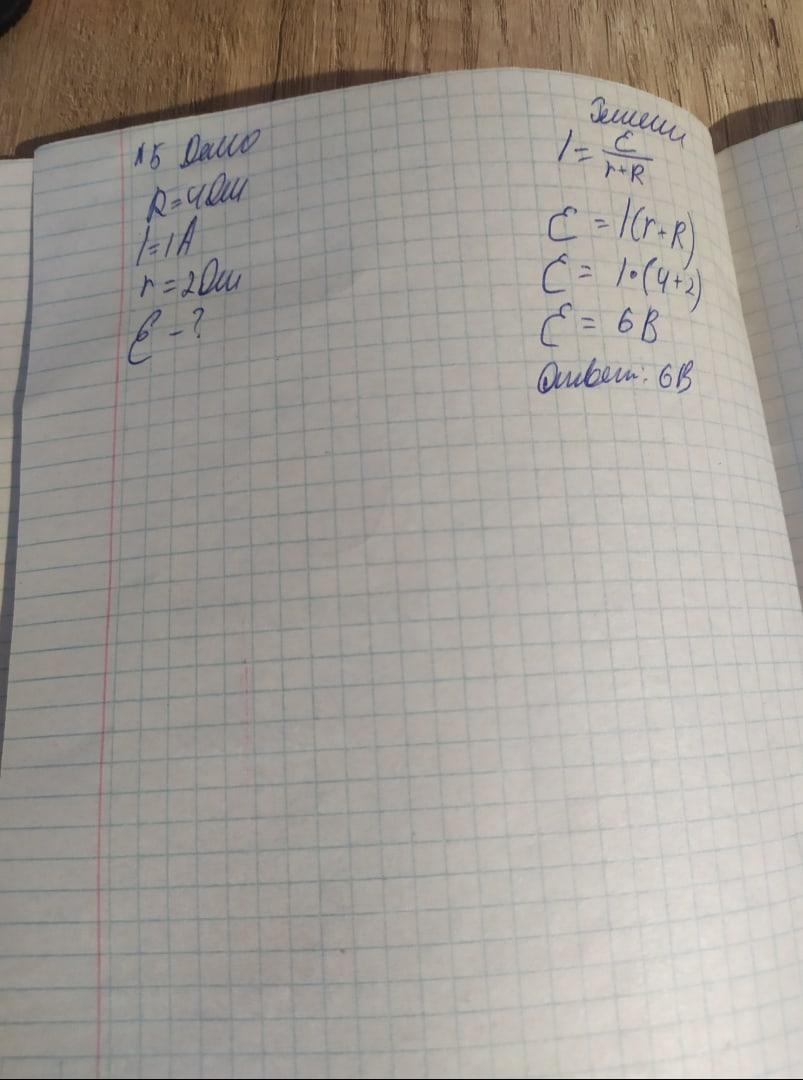 №5 Дано
R=4Ом
I=1А
r=2Ом
ℰ-?
Решени
I=ℰ/r+R
ℰ=I(r+R)
ℰ=1•(4+2)
ℰ=6В
Ответ: 6В